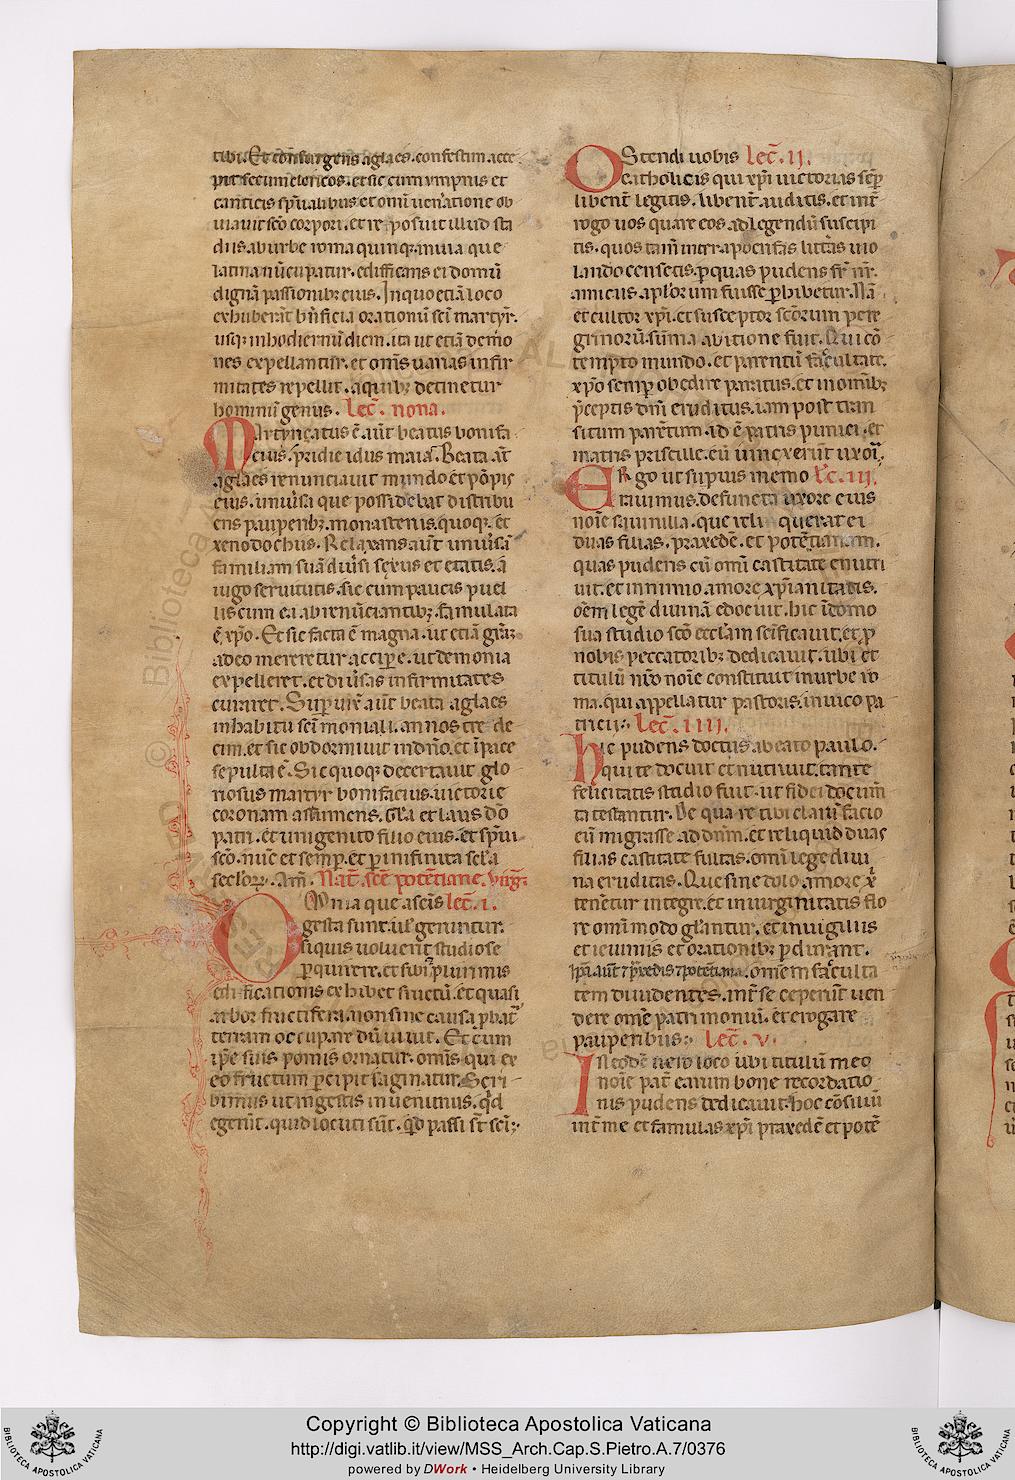 tibi. Et consurgens aglaes. confestim acce
pit secum clericos. et sic cum ympnis et
canticis sp̄ualibus et omī uen̄atione ob
uiauit sc̄o corpori. et reposuit illud sta
diis ab urbe roma quinq; in uia que
latina nūcupatur. edifficans ei domū
dignā passionibꝫ eius. In quo etiā loco
exhuberāt bn̄ficia orationū sc̄i martyr̄.
usq; in hodiernū diem. ita ut etiā demo
nes expellantur. et om̄s uarias infir
mitates repellit. a quibꝫ detinetur
hominū genus. Lec̄. nona.
Martyriꝫatus ē aūt beatus bonifa
cius. pridie idus maias. Beata aūt
aglaes renunciauit mundo et pōpis
eius. uniūsa que possidebat distribu
ens pauperibꝫ. monasteriis quoq;. et
xenodochiis. Relaxans aūt uniūsā
familiam suā diūsi sexus et etatis. a
iugo seruitutis. sic cum paucis puel
lis cum ea abrenūciantibꝫ. famulata
ē xp̄o. Et sic facta ē magna. ut etiā grāꝫ
adeo mereretur accipere. ut demonia
expelleret. et diūsas infirmitates
curaret. Superuix̄ aūt beata aglaes
in habitu sc̄i moniali. annos tre de
cim. et sic obdormiuit in dn̄o. et ī pace
sepulta ē. Sic quoq; decertauit glo
riosus martyr bonifacius. uictorie
coronam assumens. Gl̄a et laus dō
patri. et unigenito filio eius. et sp̄ui
sc̄o. nūc et semp. et p infinita sc̄la
sc̄eloꝝ. Am̄. Nat̄. sc̄e potētiane. uirḡ.
Omnia que a sc̄is lec̄. i.
gesta sunt. ul̄ geruntur.
si quis uoluerit studiose
pquirere. et sibi ⁊ plurimis
edificationis exhibet fructū. et quasi
arbor fructifera. non sine causa pbat̄
terram occupare dū uiuit. Et cum
ip̄e suis pomis ornatur. om̄s qui ex
eo fructum pcipit saginatur. Scri
bimus ut in gestis inuenimus. qd̄
egerūt. quid locuti sūt. qd̄ passi st̄ sc̄i.
OStendi uobis Lec̄. ii.
catholicis qui xp̄i uictorias semp
libent̄ legitis. libent̄ auditis. et int̄
rogo uos quare eos ad legendū suscipi
tis. quos tam̄ inter apocrifas litt̄as uio
lando censetis. p quas pudens fr̄ nr̄.
amicus aplōrum fuisse phibetur. Nā
et cultor xp̄i. et susceptor sc̄orum pere
grinorū sum̄a auitione fuit. Qui cō
tempto mundo. et parentū facultate.
xp̄o semp obedire paratus. et in omibꝫ
pceptis dm̄i eruditus. iam post tran
situm parētum. id ē patris punici. et
matris priscille. cū uinxerūt uxori.
ERgo ut supius memo Lc̄. iii.
rauimus. defuncta uxore eius
noīe sauinilla. que ibi querat ei
duas filias. praxedē. et potētianam.
quas pudens cū omī castitate enutri
uit. et in nimio amore xp̄ianitatis.
oēm legē diuinā edocuit. hic ī domo
sua studio sc̄o eccl̄am sc̄ificauit. et p
nobis peccatoribꝫ dedicauit. ubi et
titulū nr̄o noīe constituit in urbe ro
ma. qui appellatur pastoris. in uico pa
tricii. Lec̄. iiii.
hic pudens doctus a beato paulo.
qui te docuit et nutriuit. tante
felicitatis studio fuit. ut fidei docum̄
ta testantur. De qua re tibi clarū facio
eū migrasse ad dn̄m. et reliquid duas
filias castitate fultas. omī lege diui
na eruditas. Que sine dolo. amore xp̄i
tenētur integre. et in uirginitatis flo
re omīmodo gl̄antur. et in uigiliis
et ieiuniis et orationibꝫ pdurant.
Ip̄a aūt ⁊ praxedis ⁊ potētiana. omēm faculta
tem diuidentes. int̄ se ceperūt uen
dere om̄e patrimoniū. et erogare
pauperibus. Lec̄. v.
In eodē uero loco ubi titulū meo
noīe pat̄ earum bone recordatio
nis pudens dedicauit. hoc cōsiliū
int̄ me et famulas xp̄i praxedē et potē
Copyright © Biblioteca Apostolica Vaticana
http://digi.vatlib.it/view/MSS_Arch.Cap.S.Pietro.A.7/0376
powered by DWork • Heidelberg University Library